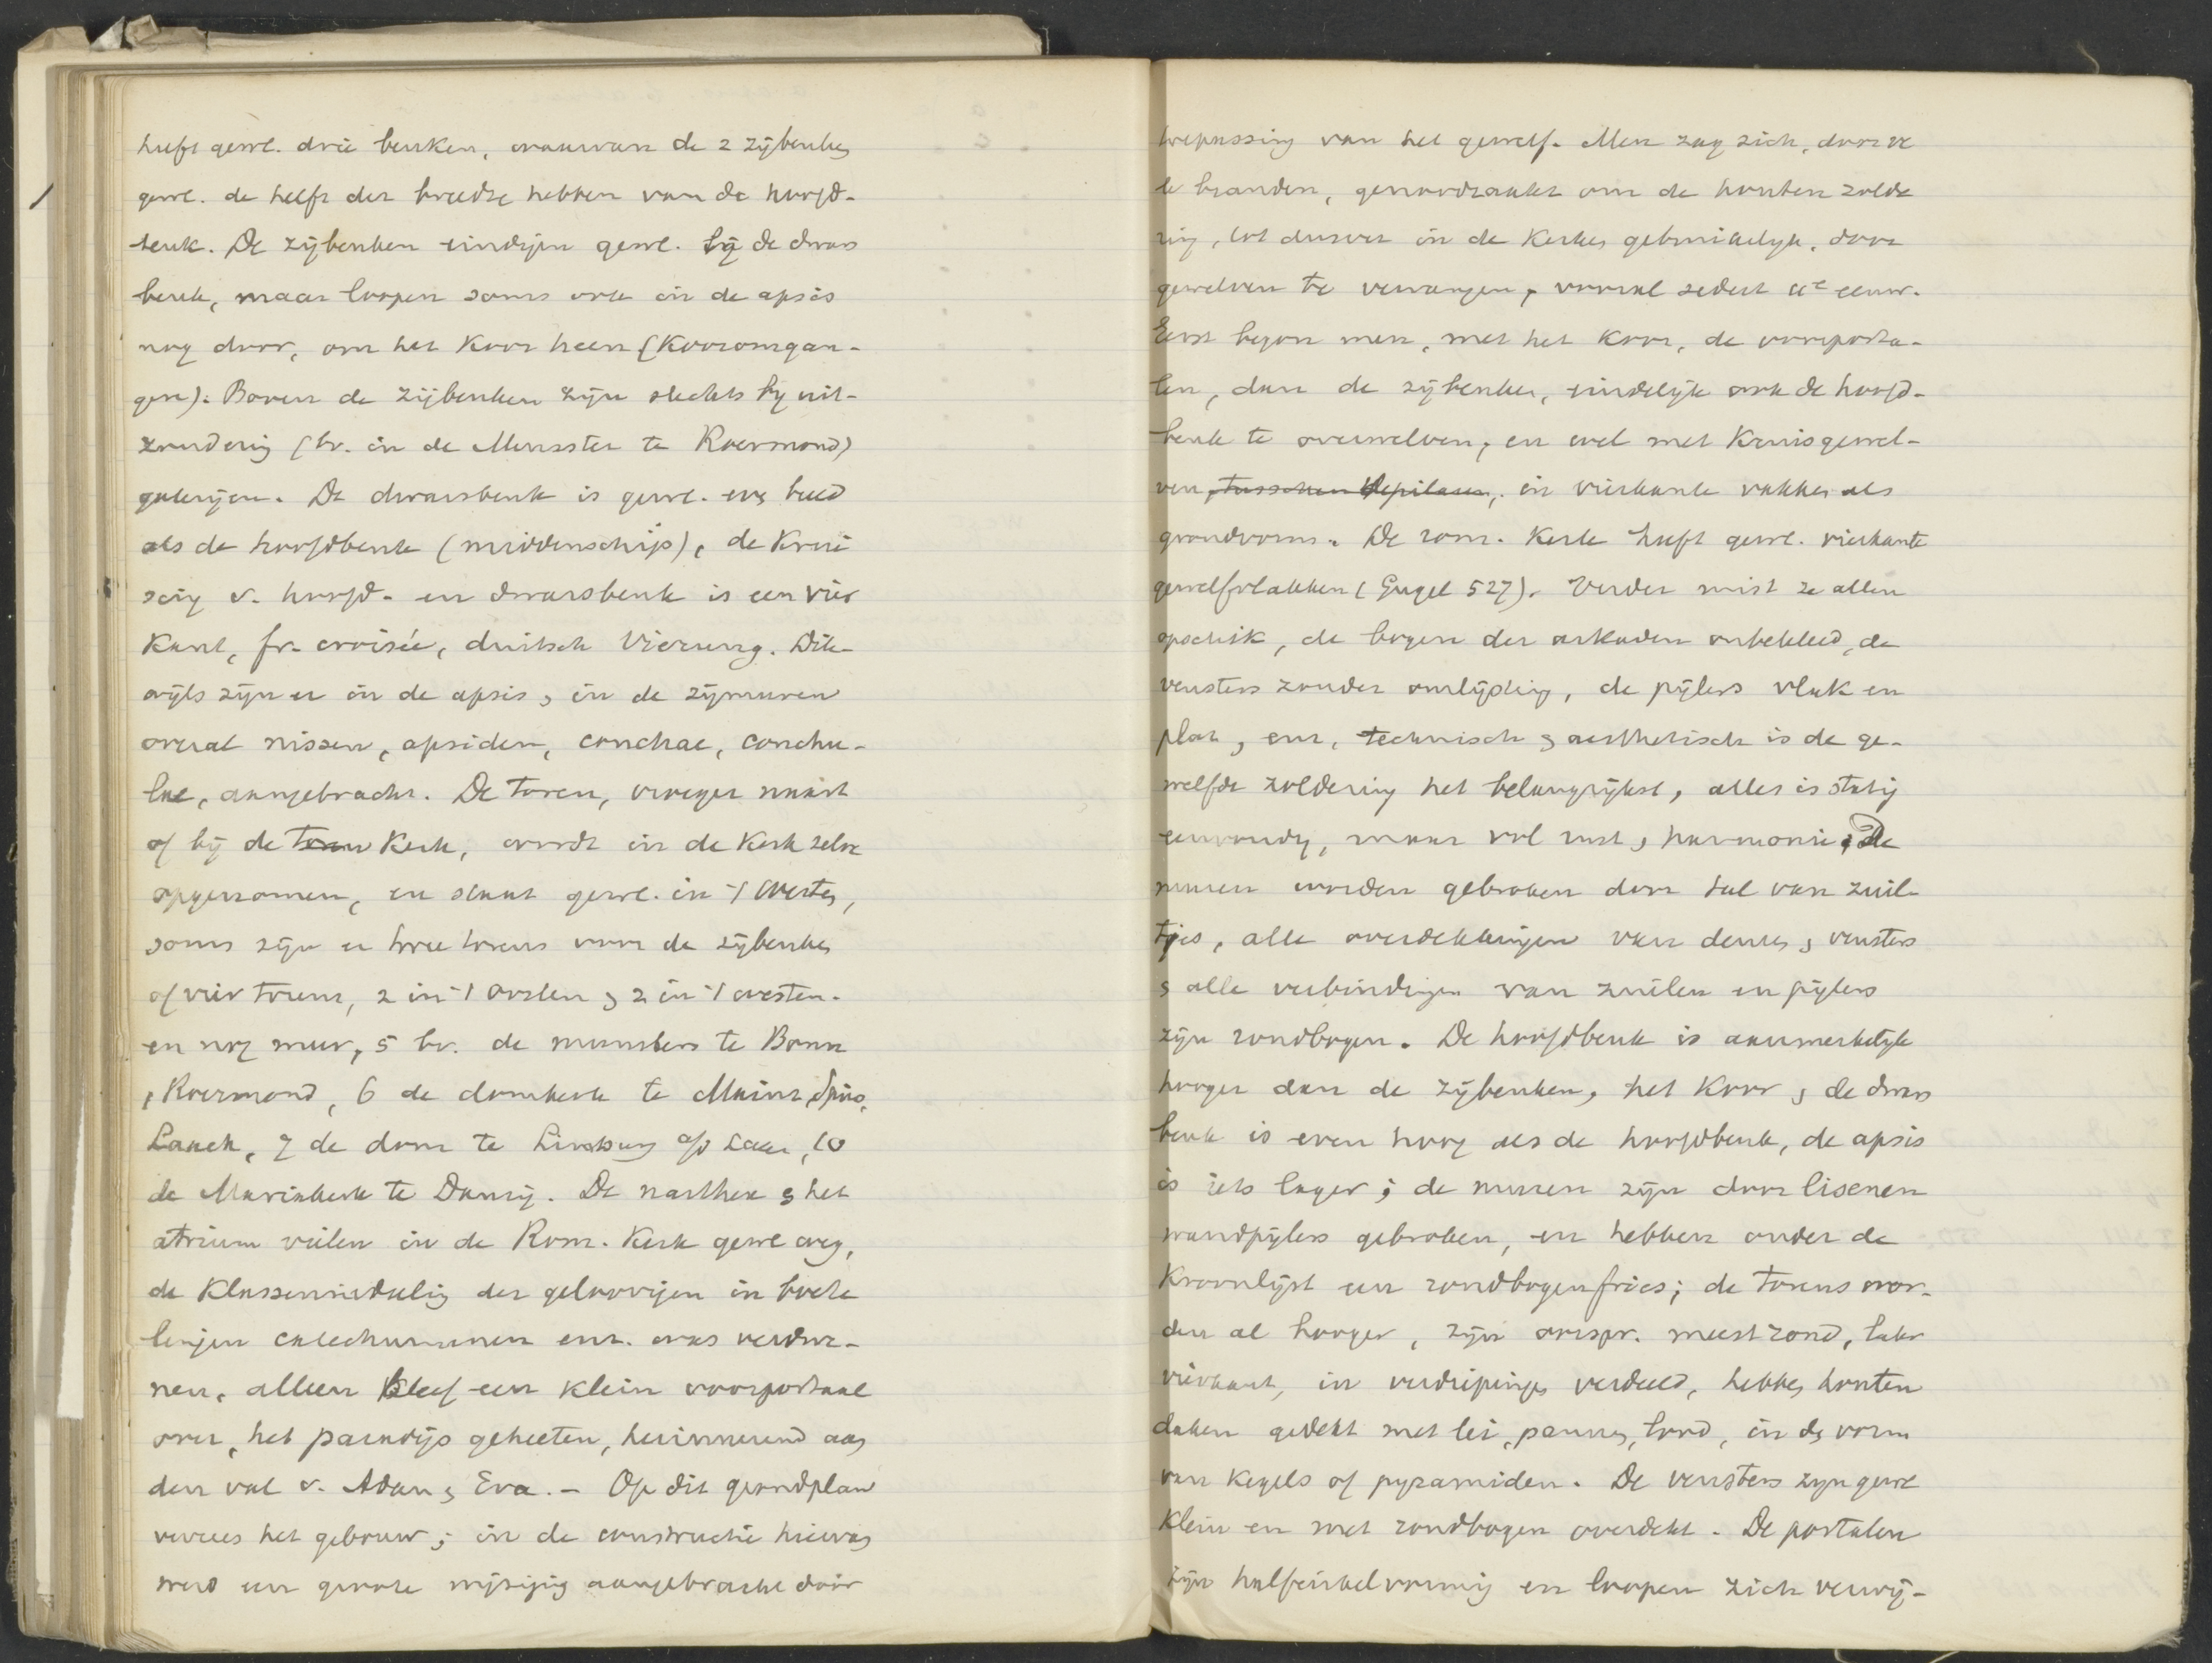 heeft gewl. drie beuken, waarvan de 2 zijbeuken
gewl. de helft der breedte hebben van de hoofd-
beuk. De zijbeuken eindigen gewl. bij de dwars
beuk, maar loopen soms ook in de apsis
nog door, om het Koor heen (Kooromgan-
gen). Boven de zijbeuken zijn slechts bij uit-
zondering (bv. in de Munster te Roermond)
galerijen. De dwarsbeuk is gewl. even breed
als de hoofdbeuk (middenschip), de Krui
sing v. hoofd- en dwarsbeuk is een vier
kant, fr. croisée, duitsch Vierung. Dik-
wijls zijn er in de apsis & in de zijmuren
overal nissen, apsiden, conchae, conchu-
lae, aangebracht. De toren, vroeger naast
of bij de toren Kerk, wordt in de Kerk zelve
opgenomen, en staat gewl. in 't Westen,
soms zijn er twee torens voor de zijbeuken
of vier torens, 2 in 't oosten & 2 in 't westen.
en nog meer, 5 bv. de munsters te Bonn
& Roermond, 6 de domkerk te Mainz, Spiers,
Laach, 7 de dom te Limburg a/d Laan, 10
de Mariakerk te Danzig. De narthex & het
atrium vielen in de Rom. Kerk gewl weg,
de Klassenindeeling der geloovigen in boete
lingen catechumenen enz. was verdwe-
nen, alleen bleef een klein voorportaal
over, het paradijs geheeten, herinnerend aan
den val v. Adam & Eva. - Op dit grondplan
verrees het gebouw; in de constructie hiervan
werd een groote wijziging aangebracht door
toepassing van het gewelf. Men zag zich, door de
branden, genoodzaakt om de houten zolde
ring, tot dusver in de Kerken gebruikelijk, door
gewelven te vervangen, vooral sedert 11e eeuw.
Eerst begon men, met het Koor, de voorporta-
len, dan de zijbeuken, eindelijk ook de hoofd-
beuk te overwelven, en wel met Kruisgewel-
ven, tusschen de pilaren, in vierkante vakken als
grondvorm. De rom. Kerk heeft gewl. vierkante
gewelfvlakken (Gugel 527). Verder mist ze allen
opschik, de bogen der arkaden onbekleed, de
vensters zonder omlijsting, de pijlers vlak en
plat, enz, technisch & aesthetisch is de ge-
welfde zoldering het belangrijkst, alles is statig
eenvoudig, maar vol rust & harmonie; de
muren worden gebroken door tal van zuil-
tjes, alle overdekkingen van deuren & vensters
& alle verbindingen van zuilen en pijlers
zijn rondbogen. De hoofdbeuk is aanmerkelijk
hooger dan de zijbeuken, het Koor & de dwars
beuk is even hoog als de hoofdbeuk, de apsis
is iets lager; de muren zijn door lisenen
wandpijlers gebroken, en hebben onder de
Kroonlijst een rondbogenfries; de torens wor-
den al hooger, zijn oorspr. meest rond, later
vierkant, in verdiepingen verdeeld, hebben houten
daken gedekt met lei, pannen, lood, in den vorm
van Kegels of pyramiden. De vensters zijn gewl
klein en met rondbogen overdekt. De portalen
zijn halfcirkelvormig en loopen zich verwij-